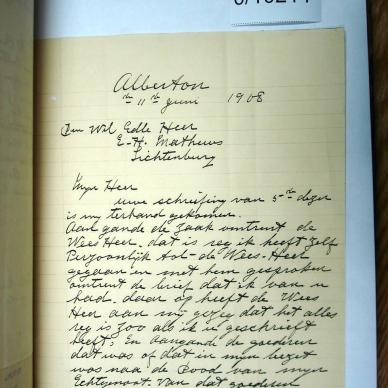 Alberton
den 11de Juni 1908
Den Wel Edle Heer
E. H. Mathews
Lichtenburg
Myn Heer
uwe schrijfing van 5de dezer
is my terhand gekomen.
Aan gande de zaak omtrent de
Wees Heer. dat is reg ik heeft zelf
Perzoonlijk tot de Wees-Heer
gegaan en met hem gesproken
omtrent de brief dat ik van u
had. daar op heeft de Wees
Heer aan my gezeg dat het alles
reg is zoo als ik u geschrieft
heeft, En aangande de goederen
dat was of dat in myn bezit
was na de Dood van myn
Echtgenoot. Van dat goederen